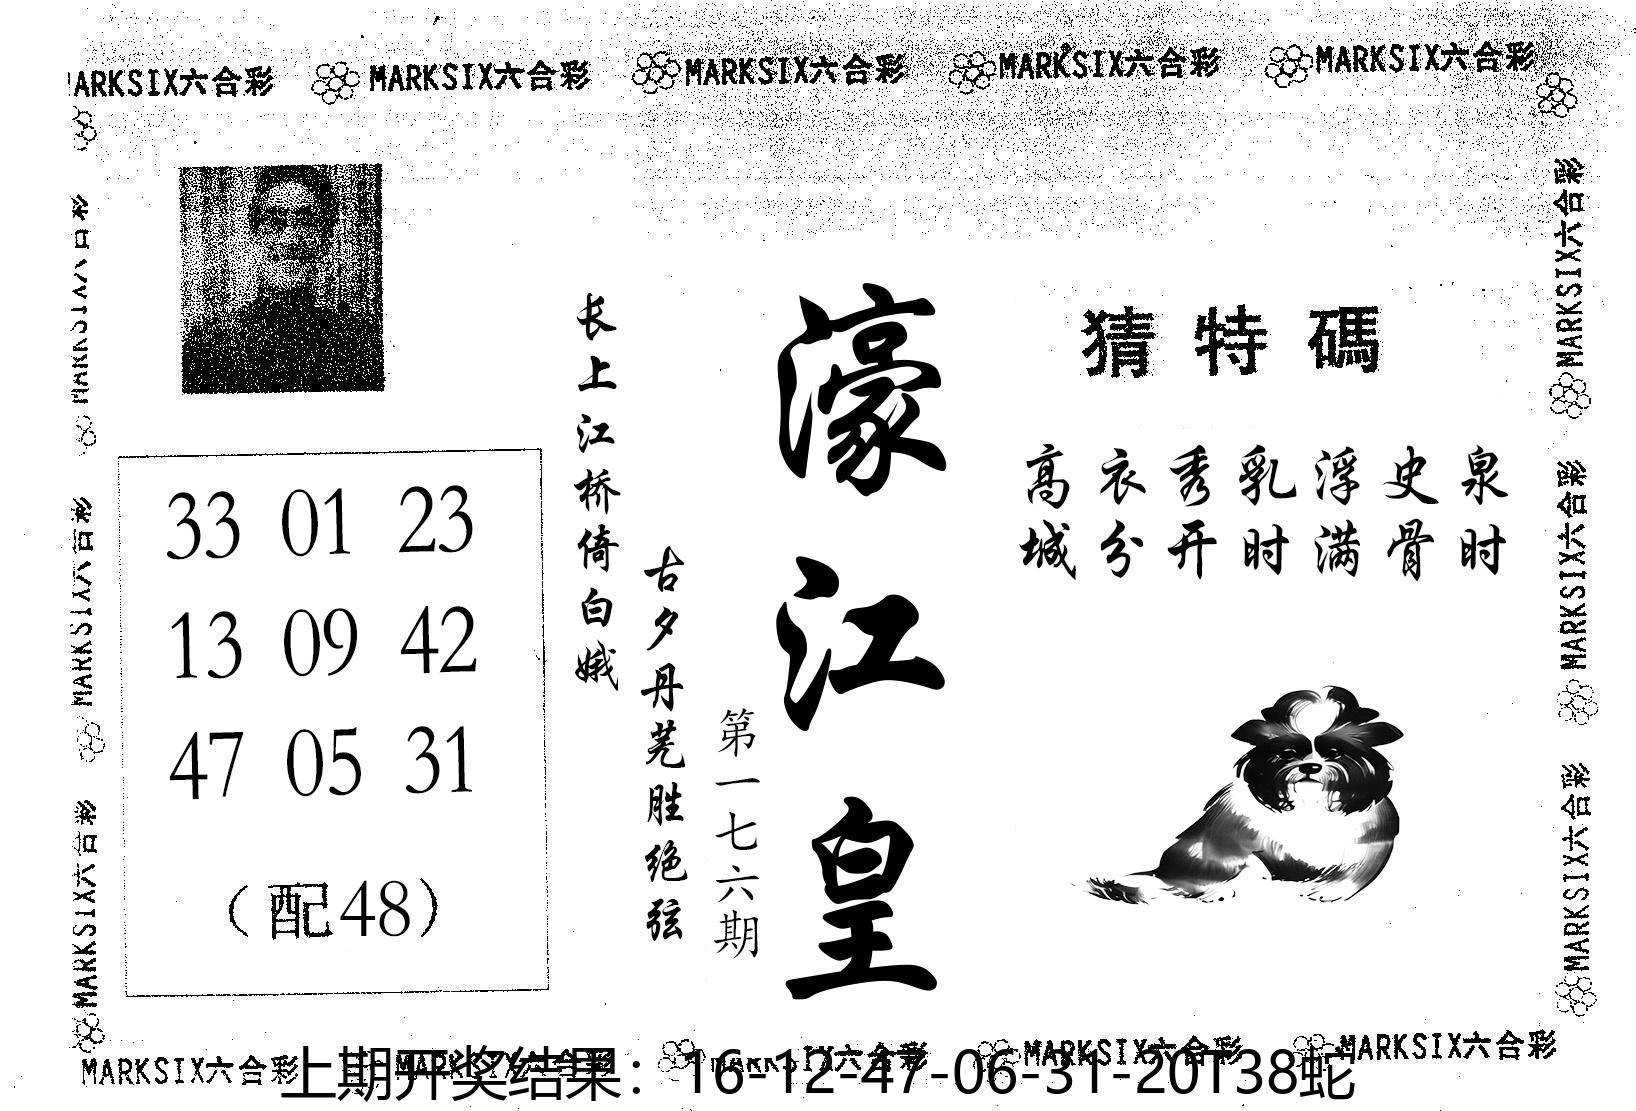 MARKSIX六合彩 MARKSIX六合彩 MARKSIX六合彩 MARKSIX六合彩 MARKSIX六合彩
猜特碼
高衣秀乳浮史泉
城分开时满骨时
濠江皇
第一七六期
古夕丹芜胜绝弦
长上江桥倚白娥
33 01 23
13 09 42
47 05 31
（配48）
MARKSIX六合彩
MARKSIX六合彩
MARKSIX六合彩
MARKSIX六合彩
MARKSIX六合彩
MARKSIX六合彩
MARKSIX六合彩 MARKSIX六合彩 MARKSIX六合彩 MARKSIX六合彩 MARKSIX六合彩
上期开奖结果：16-12-47-06-31-20T38蛇